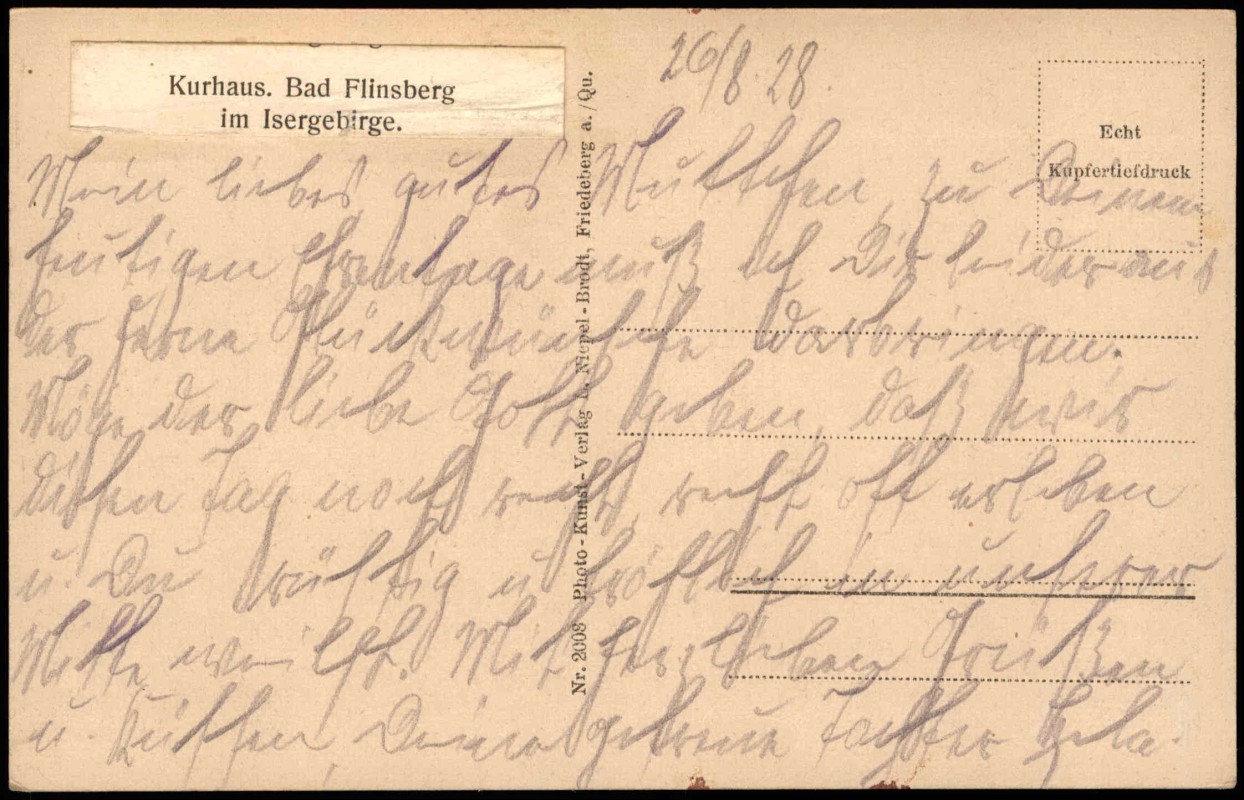 Kurhaus. Bad Flinsberg
im Isergebirge.
26/8. 28.
Echt
Kupfertiefdruck
Nr. 2008 Photo-Kunst-Verlag Niepel-Brodt, Friedeberg a./Qu.
Mein liebes gutes Muttchen, zu Deinem
heutigen muß ich Dir leider aus
der Ferne Glückwünsche darbringen.
Möge der liebe Gott geben, daß wir
diesen Tag noch recht, recht oft erleben
u. Du rüstig u. fröhlich in unserer
Mitte weilst. Mit herzlichen Grüßen
u. Küssen, Deine getreue Tochter